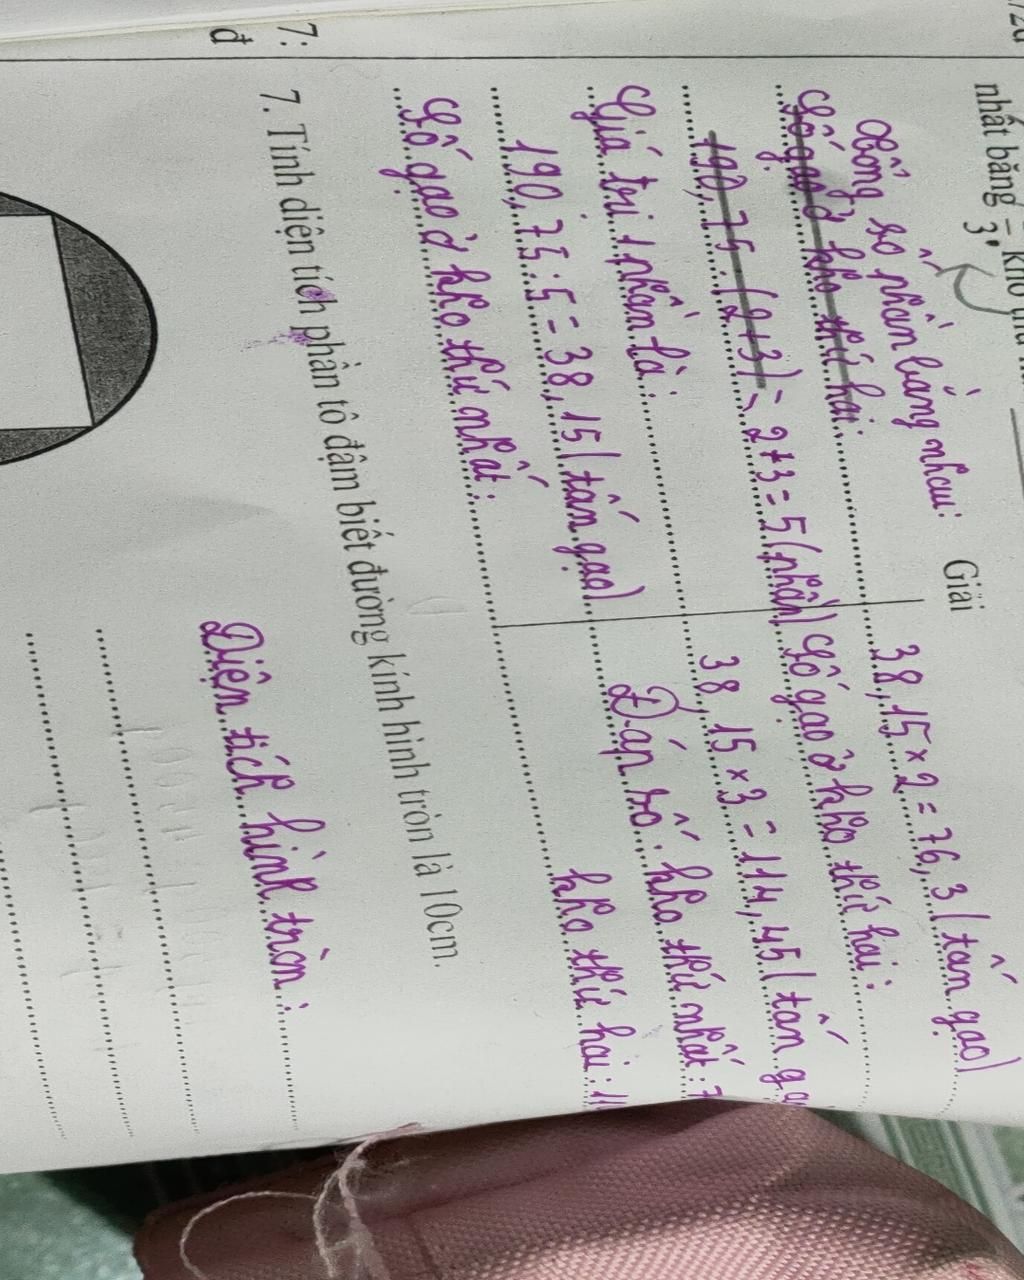 nhất bằng
3
Giải
Tổng số phần bằng nhau:
Số gạo ở kho thứ hai:
190,75 : (2+3) = 2+3 = 5 (phần)
Giá trị 1 phần là:
190,75 : 5 = 38,15 (tấn gạo)
Số gạo ở kho thứ nhất:
38,15 × 2 = 76,3 (tấn gạo)
Số gạo ở kho thứ hai:
38,15 × 3 = 114,45 (tấn
Đáp số: kho thứ nhất: 7
kho thứ hai: 11
7:
đ
7. Tính diện tích phần tô đậm biết đường kính hình tròn là 10cm.
Diện tích hình tròn: